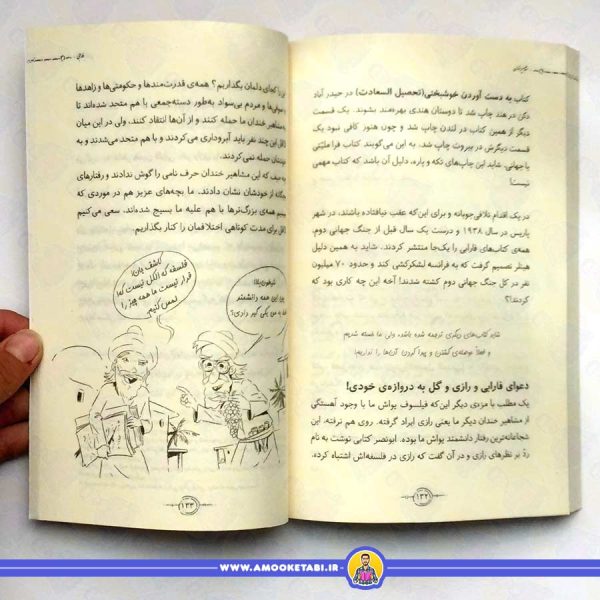 کتاب به دست آوردن خوشبختی(تحصیل السعادت) در حیدر آباد
دکن در هند چاپ شد تا دوستان هندی بهره‌مند بشوند. یک قسمت
دیگر از همین کتاب در لندن چاپ شد و چون هنوز کافی نبود یک
قسمت دیگرش در بیروت چاپ شد. به این می‌گویند کتاب فرا ملیّتی
یا جهانی. شاید این چاپ‌های تکه و پاره، دلیل آن باشد که کتاب مهمی
نیست!
در یک اقدام تلافی‌جویانه و برای این‌که عقب نیافتاده باشند، در شهر
پاریس در سال ۱۹۳۸ و درست یک سال قبل از جنگ جهانی دوم،
همه‌ی کتاب‌های فارابی را یک‌جا منتشر کردند. شاید به همین دلیل
هیتلر تصمیم گرفت که به فرانسه لشکرکشی کند و حدود ۷۰ میلیون
نفر در کل جنگ جهانی دوم کشته شدند! آخه این چه کاری بود که
کردند!؟
شاید کتاب‌های دیگری ترجمه شده باشد، ولی ما خسته شدیم
و فعلاً حوصله‌ی گشتن و پیدا کردن آن‌ها را نداریم!
دعوای فارابی و رازی و گل به دروازه‌ی خودی!
یک مطلب با مزه‌ی دیگر این‌که فیلسوف یواش ما با وجود آهستگی
از مشاهیر خندان دیگر ما یعنی رازی ایراد گرفته. روی هم نرفته، این
شجاعانه‌ترین رفتار دانشمند یواش ما بوده. ابونصر کتابی نوشت به نام
ردّ بر نظرهای رازی و در آن گفت که رازی در فلسفه‌اش اشتباه کرده.
۱۳۲
کجای دلمان بگذاریم؟ همه‌ی قدرت‌مندها و حکومتی‌ها و زاهدها
و مردم بی‌سواد به‌طور دسته‌جمعی با هم متحد شده‌اند تا
مشاهیر خندان ما حمله کنند و از آن‌ها انتقاد کنند. ولی در این میان
این چند نفر باید آبروداری کنند و با هم متحد می‌شدند و به
حمله نمی‌کردند.
که این مشاهیر خندان حرف نامی را گوش ندادند و رفتارهای
از خودشان نشان دادند. ما بچه‌های عزیز هم در موردی که
همه‌ی بزرگ‌ترها با هم علیه ما بسیج شده‌اند، سعی می‌کنیم
برای مدت کوتاهی اختلافمان را کنار بگذاریم.
کاشف یان!
فلسفه که الکل نیست که!
قرار نیست ما همه چیز را
لمس کنیم
این همه دانشمند
به من یکی گیر داری؟
۱۳۳
WWW.AMOOKETABI.IR